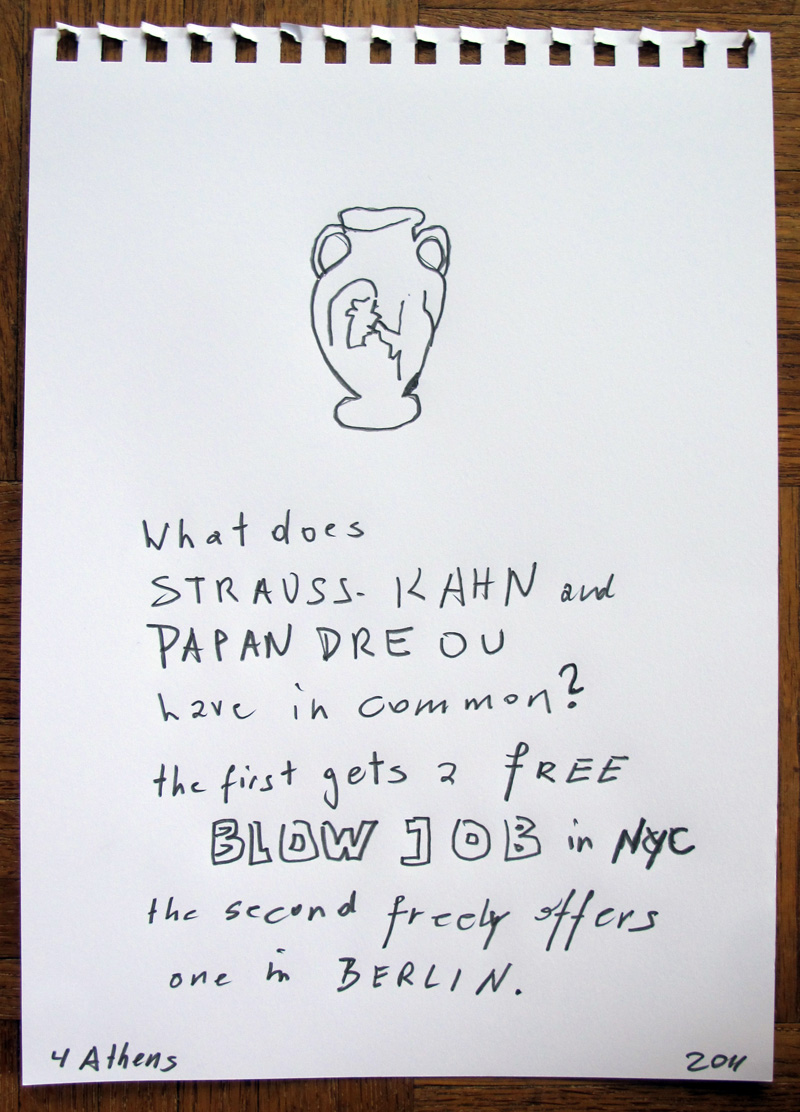 What does
STRAUSS-KAHN and
PAPANDREOU
have in common?
the first gets a FREE
BLOW JOB in NYC
the second freely offers
one in BERLIN.
4 Athens
2011